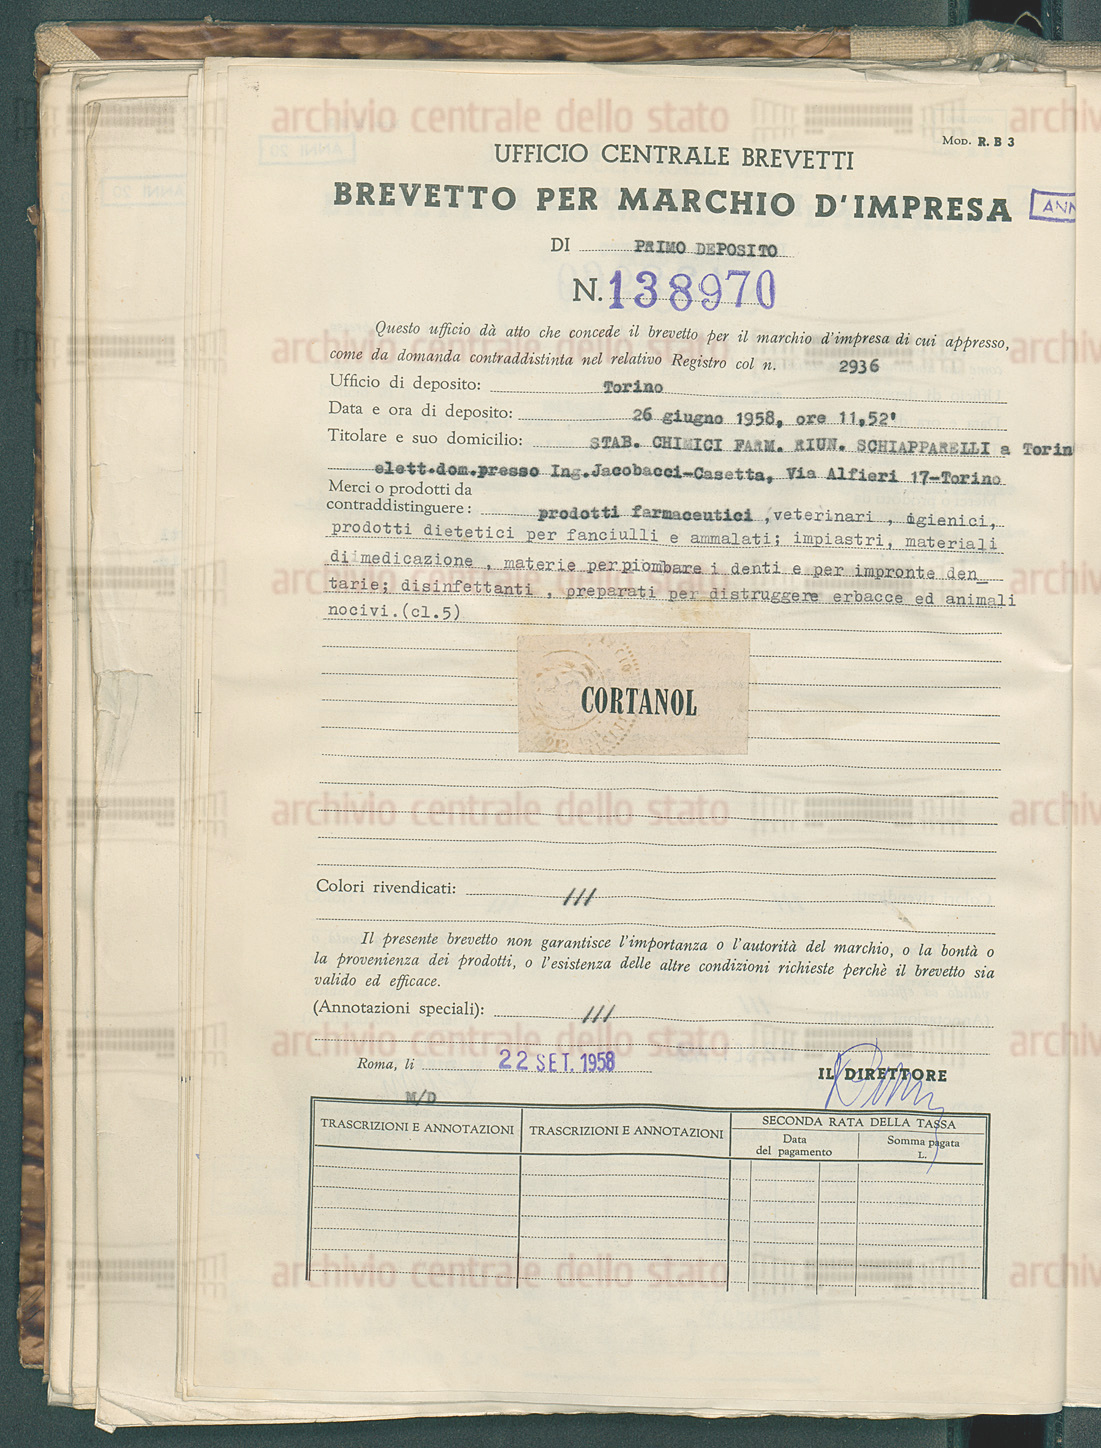 Mod. R. B 3
UFFICIO CENTRALE BREVETTI
BREVETTO PER MARCHIO D'IMPRESA
ANN
DI PRIMO DEPOSITO
N. 138970
Questo ufficio dà atto che concede il brevetto per il marchio d'impresa di cui appresso,
come da domanda contraddistinta nel relativo Registro col n. 2936
Ufficio di deposito: Torino
Data e ora di deposito: 26 giugno 1958, ore 11,52'
Titolare e suo domicilio: STAB. CHIMICI FARM. RIUN. SCHIAPPARELLI a Torin
elett.dom.presso Ing.Jacobacci-Casetta, Via Alfieri 17-Torino
Merci o prodotti da
contraddistinguere: prodotti farmaceutici ,veterinari , igienici,
prodotti dietetici per fanciulli e ammalati; impiastri, materiali
di medicazione , materie per piombare i denti e per impronte den_
tarie; disinfettanti , preparati per distruggere erbacce ed animali
nocivi.(cl.5)
CORTANOL
Colori rivendicati: ///
Il presente brevetto non garantisce l'importanza o l'autorità del marchio, o la bontà o
la provenienza dei prodotti, o l'esistenza delle altre condizioni richieste perchè il brevetto sia
valido ed efficace.
(Annotazioni speciali): ///
Roma, li 22 SET. 1958
IL DIRETTORE
M/D
TRASCRIZIONI E ANNOTAZIONI TRASCRIZIONI E ANNOTAZIONI SECONDA RATA DELLA TASSA
Data
del pagamento
Somma pagata
L.
archivio centrale dello stato
archivio centrale dello stato
archivio centrale dello stato
archivio centrale dello stato
archivio centrale dello stato
archivio centrale dello stato